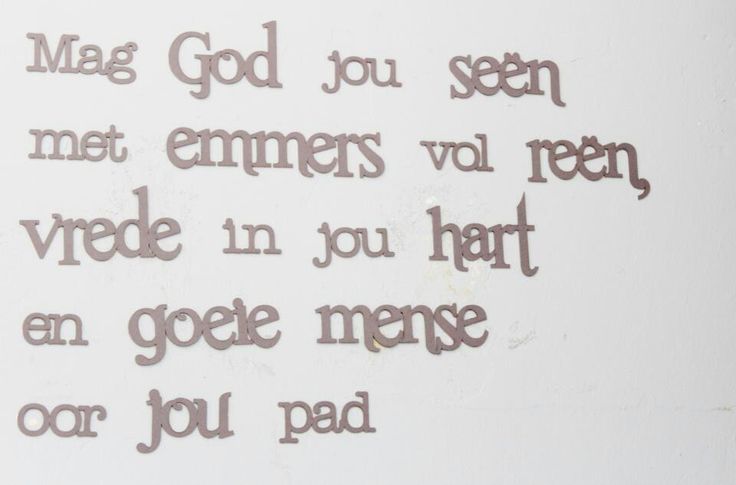 Mag God jou seën
met emmers vol reën,
vrede in jou hart
en goeie mense
oor jou pad